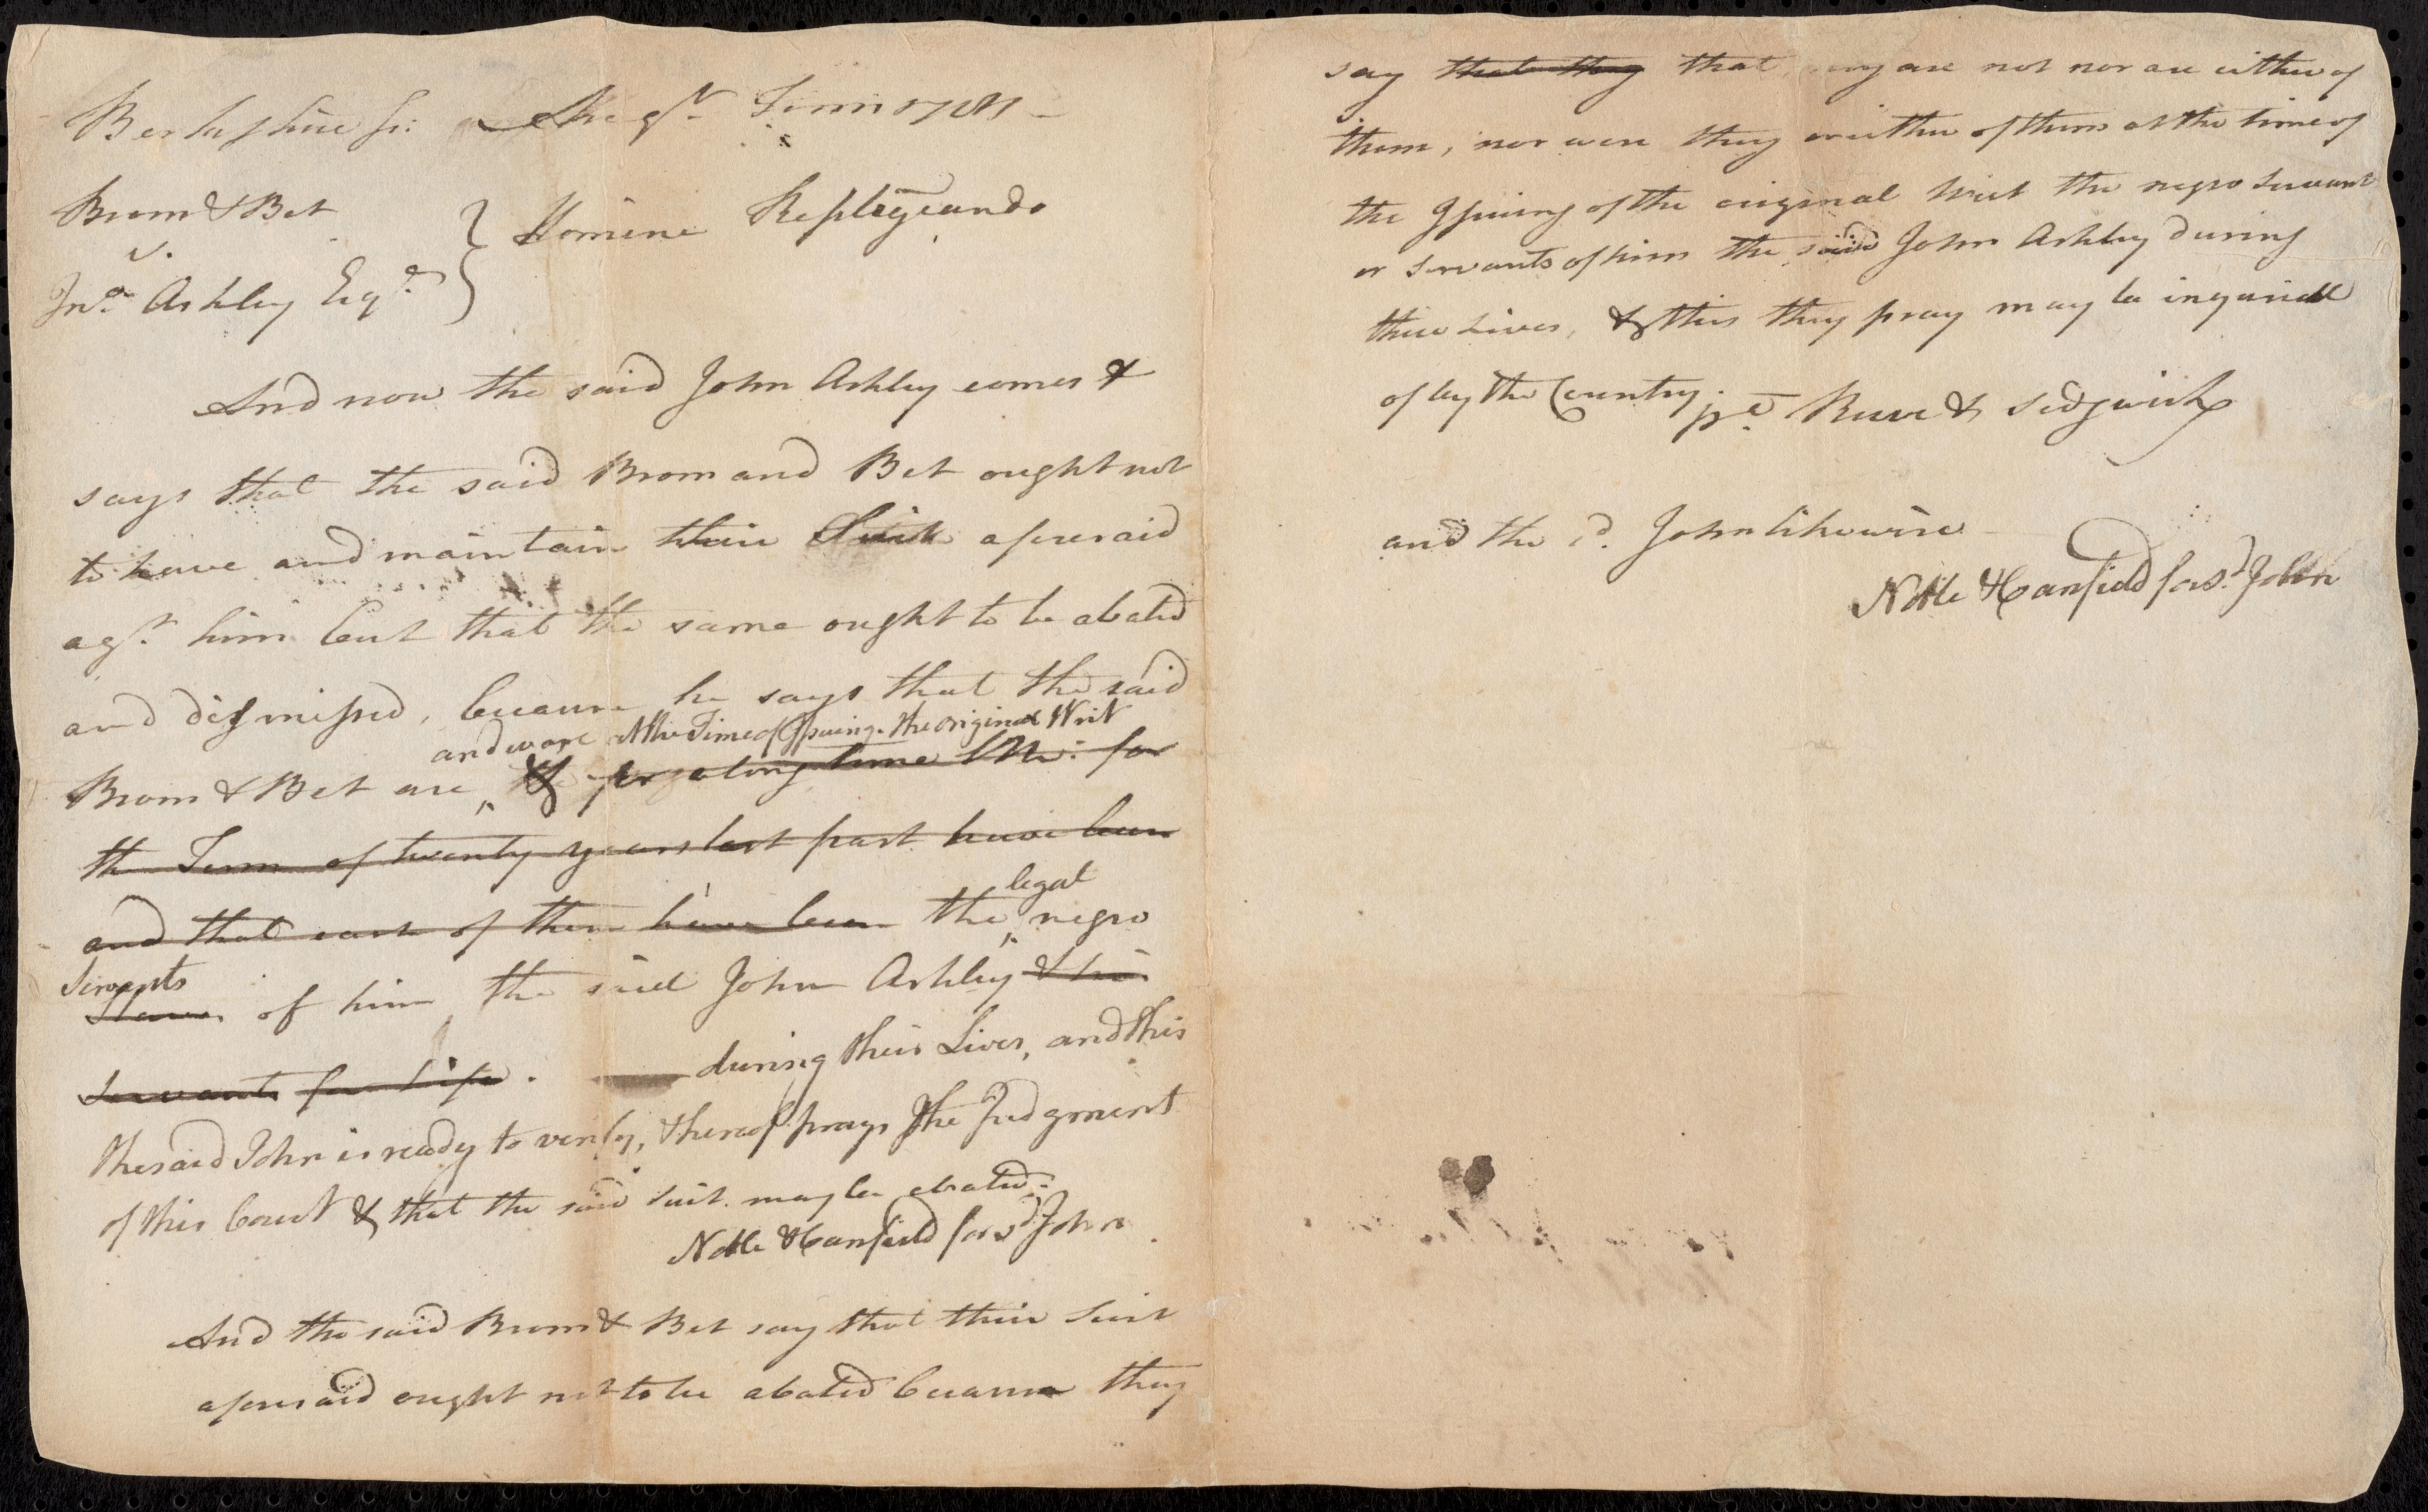 Berkshire ss: Augt. Term 1781 –
Brom & Bet
v.
Jno. Ashley Esqr.
Homine Replegiando
And now the said John Ashley comes &
says that the said Brom and Bet ought not
to have and maintain their Suit aforesaid
agt. him but that the same ought to be abated
and dismissed, because he says that the said
and were at the Time of Issuing the original Writ
Brom & Bet are & for a long time viz: for
the Term of twenty years last past have been
legal
and that each of them have been the negro
Servants
Slaves of him the said John Ashley & his
servants for Life. during their Lives, and this
the said John is ready to verify, & thereof prays the Judgment
of this Court & that the said suit may be abated.
Noble & Canfield for sd. John
And the said Brom & Bet say that their Suit
aforesaid ought not to be abated because they
say that they that they are not nor are either of
them, nor were they or either of them at the time of
the Issuing of the original Writ the negro Servant
or Servants of him the said John Ashley during
their Lives, & this they pray may be inquired
of by the Country.
pr. Reeve & Sedgwick
and the sd. John likewise
Noble & Canfield for sd. John